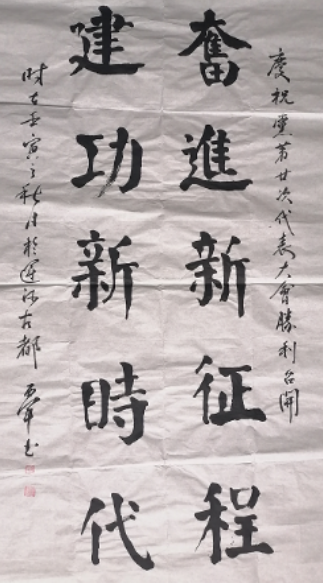 慶祝黨第廿次代表大會勝利召開
奮進新征程
建功新時代
時在壬寅之秋月於運河古都